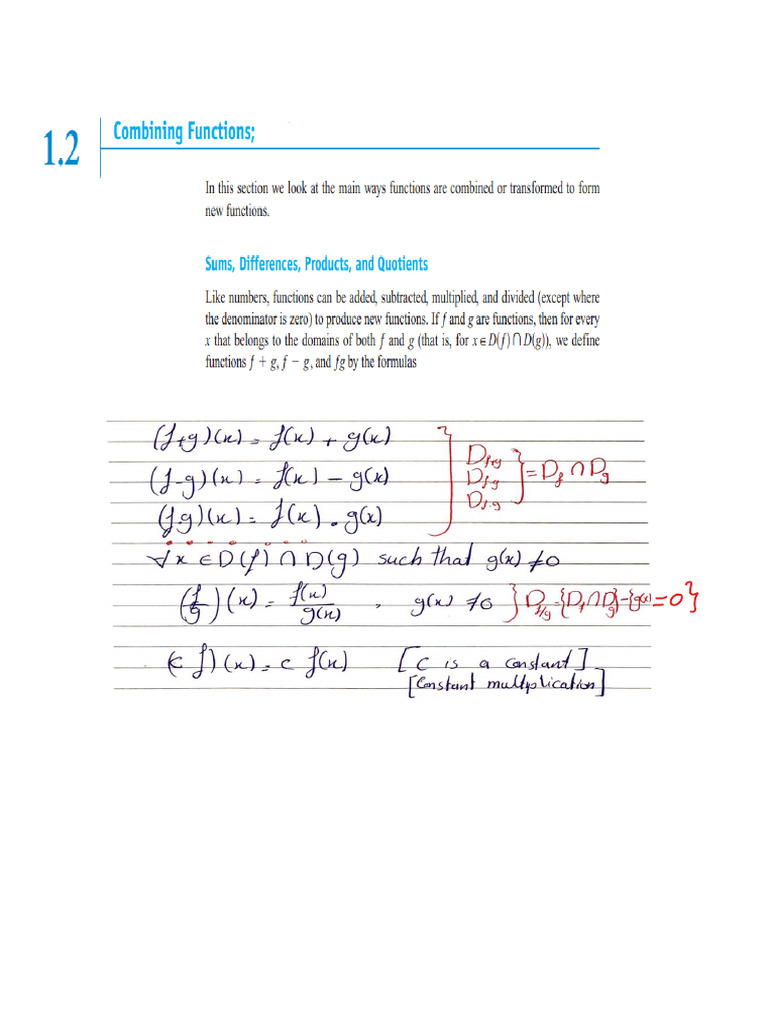 1.2
Combining Functions;
In this section we look at the main ways functions are combined or transformed to form
new functions.
Sums, Differences, Products, and Quotients
Like numbers, functions can be added, subtracted, multiplied, and divided (except where
the denominator is zero) to produce new functions. If f and g are functions, then for every
x that belongs to the domains of both f and g (that is, for x ∈ D(f) ∩ D(g)), we define
functions f + g, f − g, and fg by the formulas
(f+g)(x) = f(x) + g(x)
(f-g)(x) = f(x) - g(x)
(f.g)(x) = f(x) . g(x)
] D_{f+g} D_{f-g} D_{f.g} } = D_f ∩ D_g
∀ x ∈ D(f) ∩ D(g) such that g(x) ≠ 0
(f/g)(x) = f(x)/g(x) , g(x) ≠ 0 } D_{f/g} = {D_f ∩ D_g} - {g(x) = 0}
(c f)(x) = c f(x) [c is a constant]
[Constant multiplication]